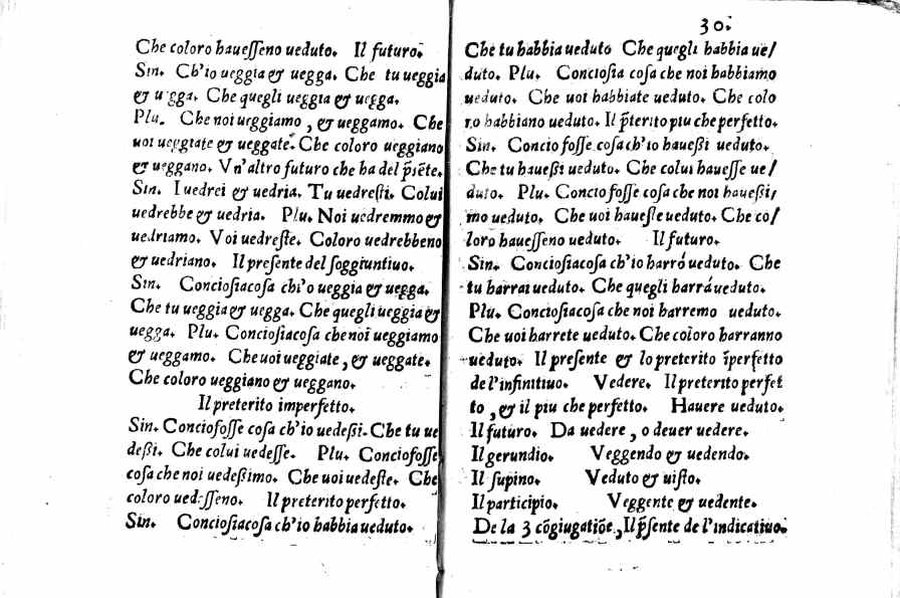 Che coloro haueſſeno ueduto. Il futuro.
Sin. Ch'io ueggia & uegga. Che tu ueggia
& uegga. Che quegli ueggia & uegga.
Plu. Che noi ueggiamo, & ueggamo. Che
uoi ueggiate & ueggate. Che coloro ueggiano
& ueggano. Vn'altro futuro che ha del p̃sẽte.
Sin. I uedrei & uedria. Tu uedreſti. Colui
uedrebbe & uedria. Plu. Noi uedremmo &
uedriamo. Voi uedreſte. Coloro uedrebbeno
& uedriano. Il preſente del ſoggiuntiuo.
Sin. Concioſiacoſa chi'o ueggia & uegga.
Che tu ueggia & uegga. Che quegli ueggia &
uegga. Plu. Concioſiacoſa che noi ueggiamo
& ueggamo. Che uoi ueggiate, & ueggate.
Che coloro ueggiano & ueggano.
Il preterito imperfetto.
Sin. Concioſoſſe coſa ch'io uedeßi. Che tu ue
deßi. Che colui uedeſſe. Plu. Concioſoſſe
coſa che noi uedeßimo. Che uoi uedeſte. Che
coloro uedeſſeno. Il preterito perfetto.
Sin. Concioſiacoſa ch'io habbia ueduto.
30.
Che tu habbia ueduto Che quegli habbia ue/
duto. Plu. Concioſia coſa che noi habbiamo
ueduto. Che uoi habbiate ueduto. Che colo
ro habbiano ueduto. Il p̃terito piu che perfetto.
Sin. Concio foſſe coſa ch'io haueßi ueduto.
Che tu haueßi ueduto. Che colui haueſſe ue/
duto. Plu. Concioſoſſe coſa che noi haueßi/
mo ueduto. Che uoi haueſte ueduto. Che co/
loro haueſſeno ueduto. Il futuro.
Sin. Concioſiacoſa ch'io harró ueduto. Che
tu harrai ueduto. Che quegli harrá ueduto.
Plu. Concioſiacoſa che noi harremo ueduto.
Che uoi harrete ueduto. Che coloro harranno
ueduto. Il preſente & lo preterito ĩperfetto
de l'infinitiuo. Vedere. Il preterito perfet
to, & il piu che perfetto. Hauere ueduto.
Il futuro. Da uedere, o deuer uedere.
Il gerundio. Veggendo & uedendo.
Il ſupino. Veduto & uiſto.
Il participio. Veggente & uedente.
De la 3 cõgiugatiõe, Il p̃ſente de l'indicatiuo.